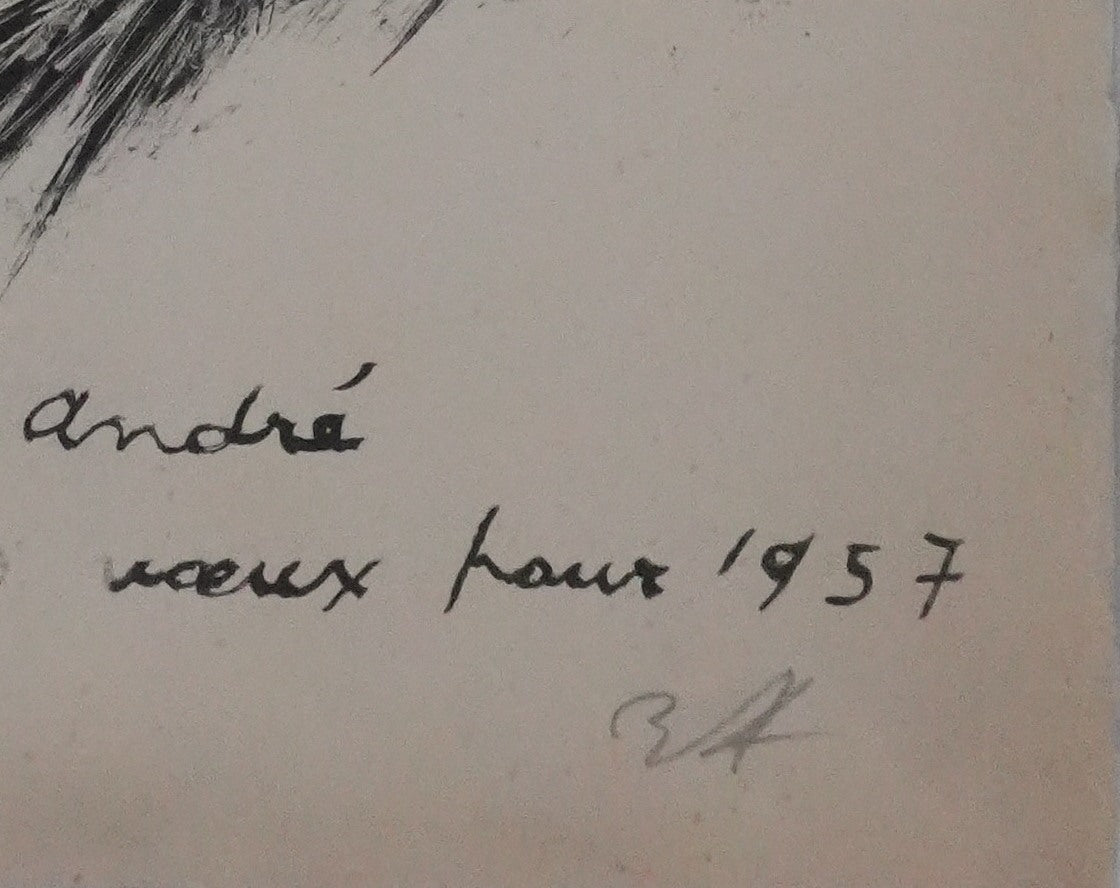 André
vœux pour 1957